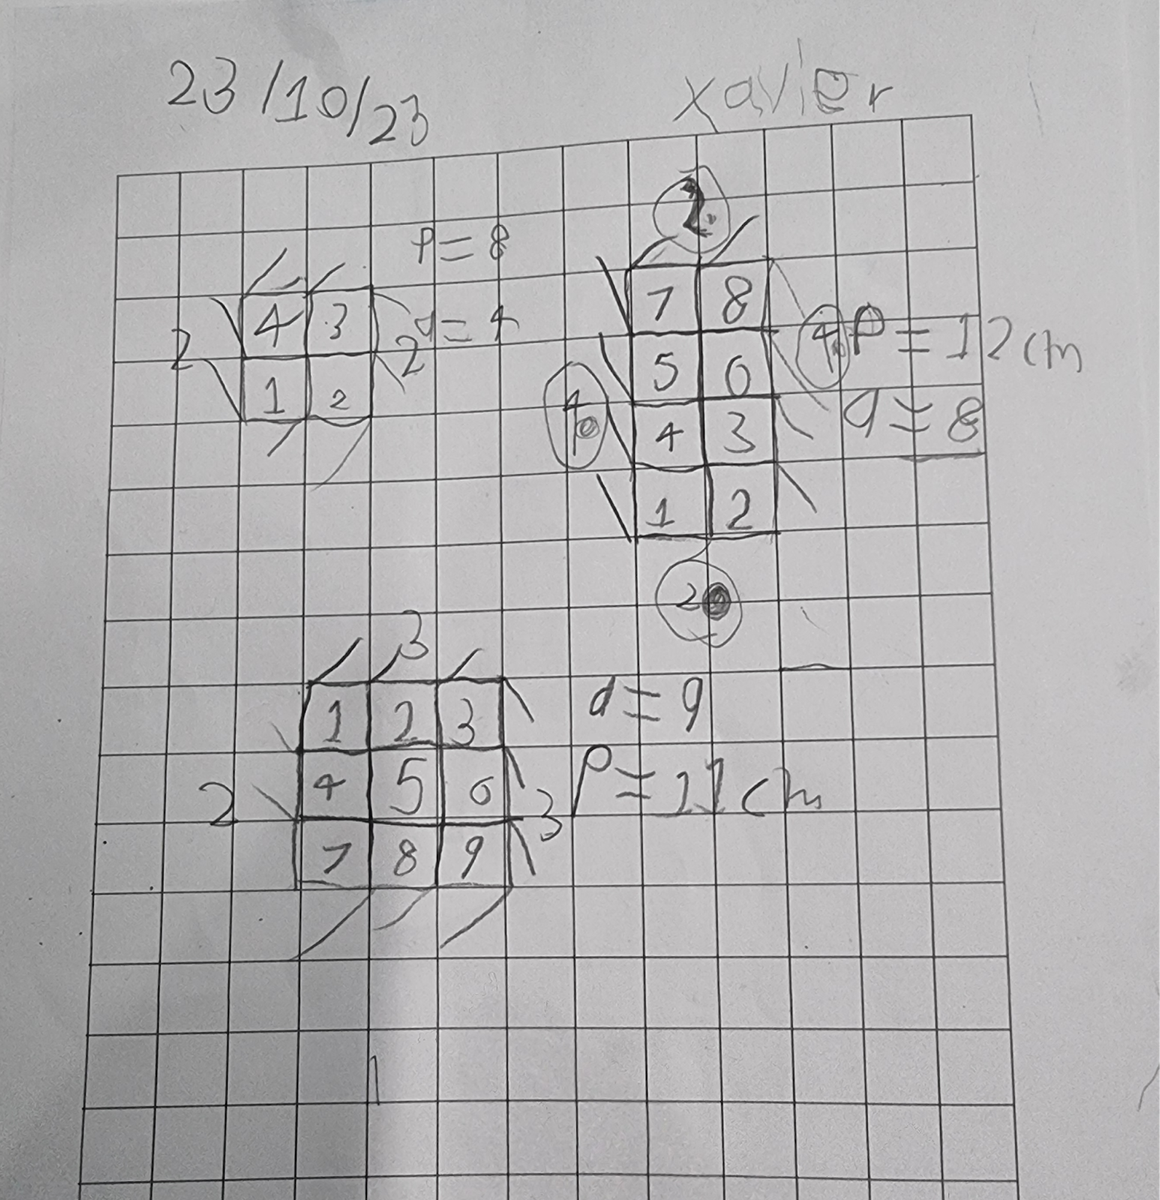 23/10/23
xavier
P = 8
4 3
1 2
2
2
a = 4
2
7 8
5 6
4 3
1 2
4
4
P = 12 cm
a = 8
2
3
1 2 3
4 5 6
7 8 9
2
3
a = 9
P = 11 cm